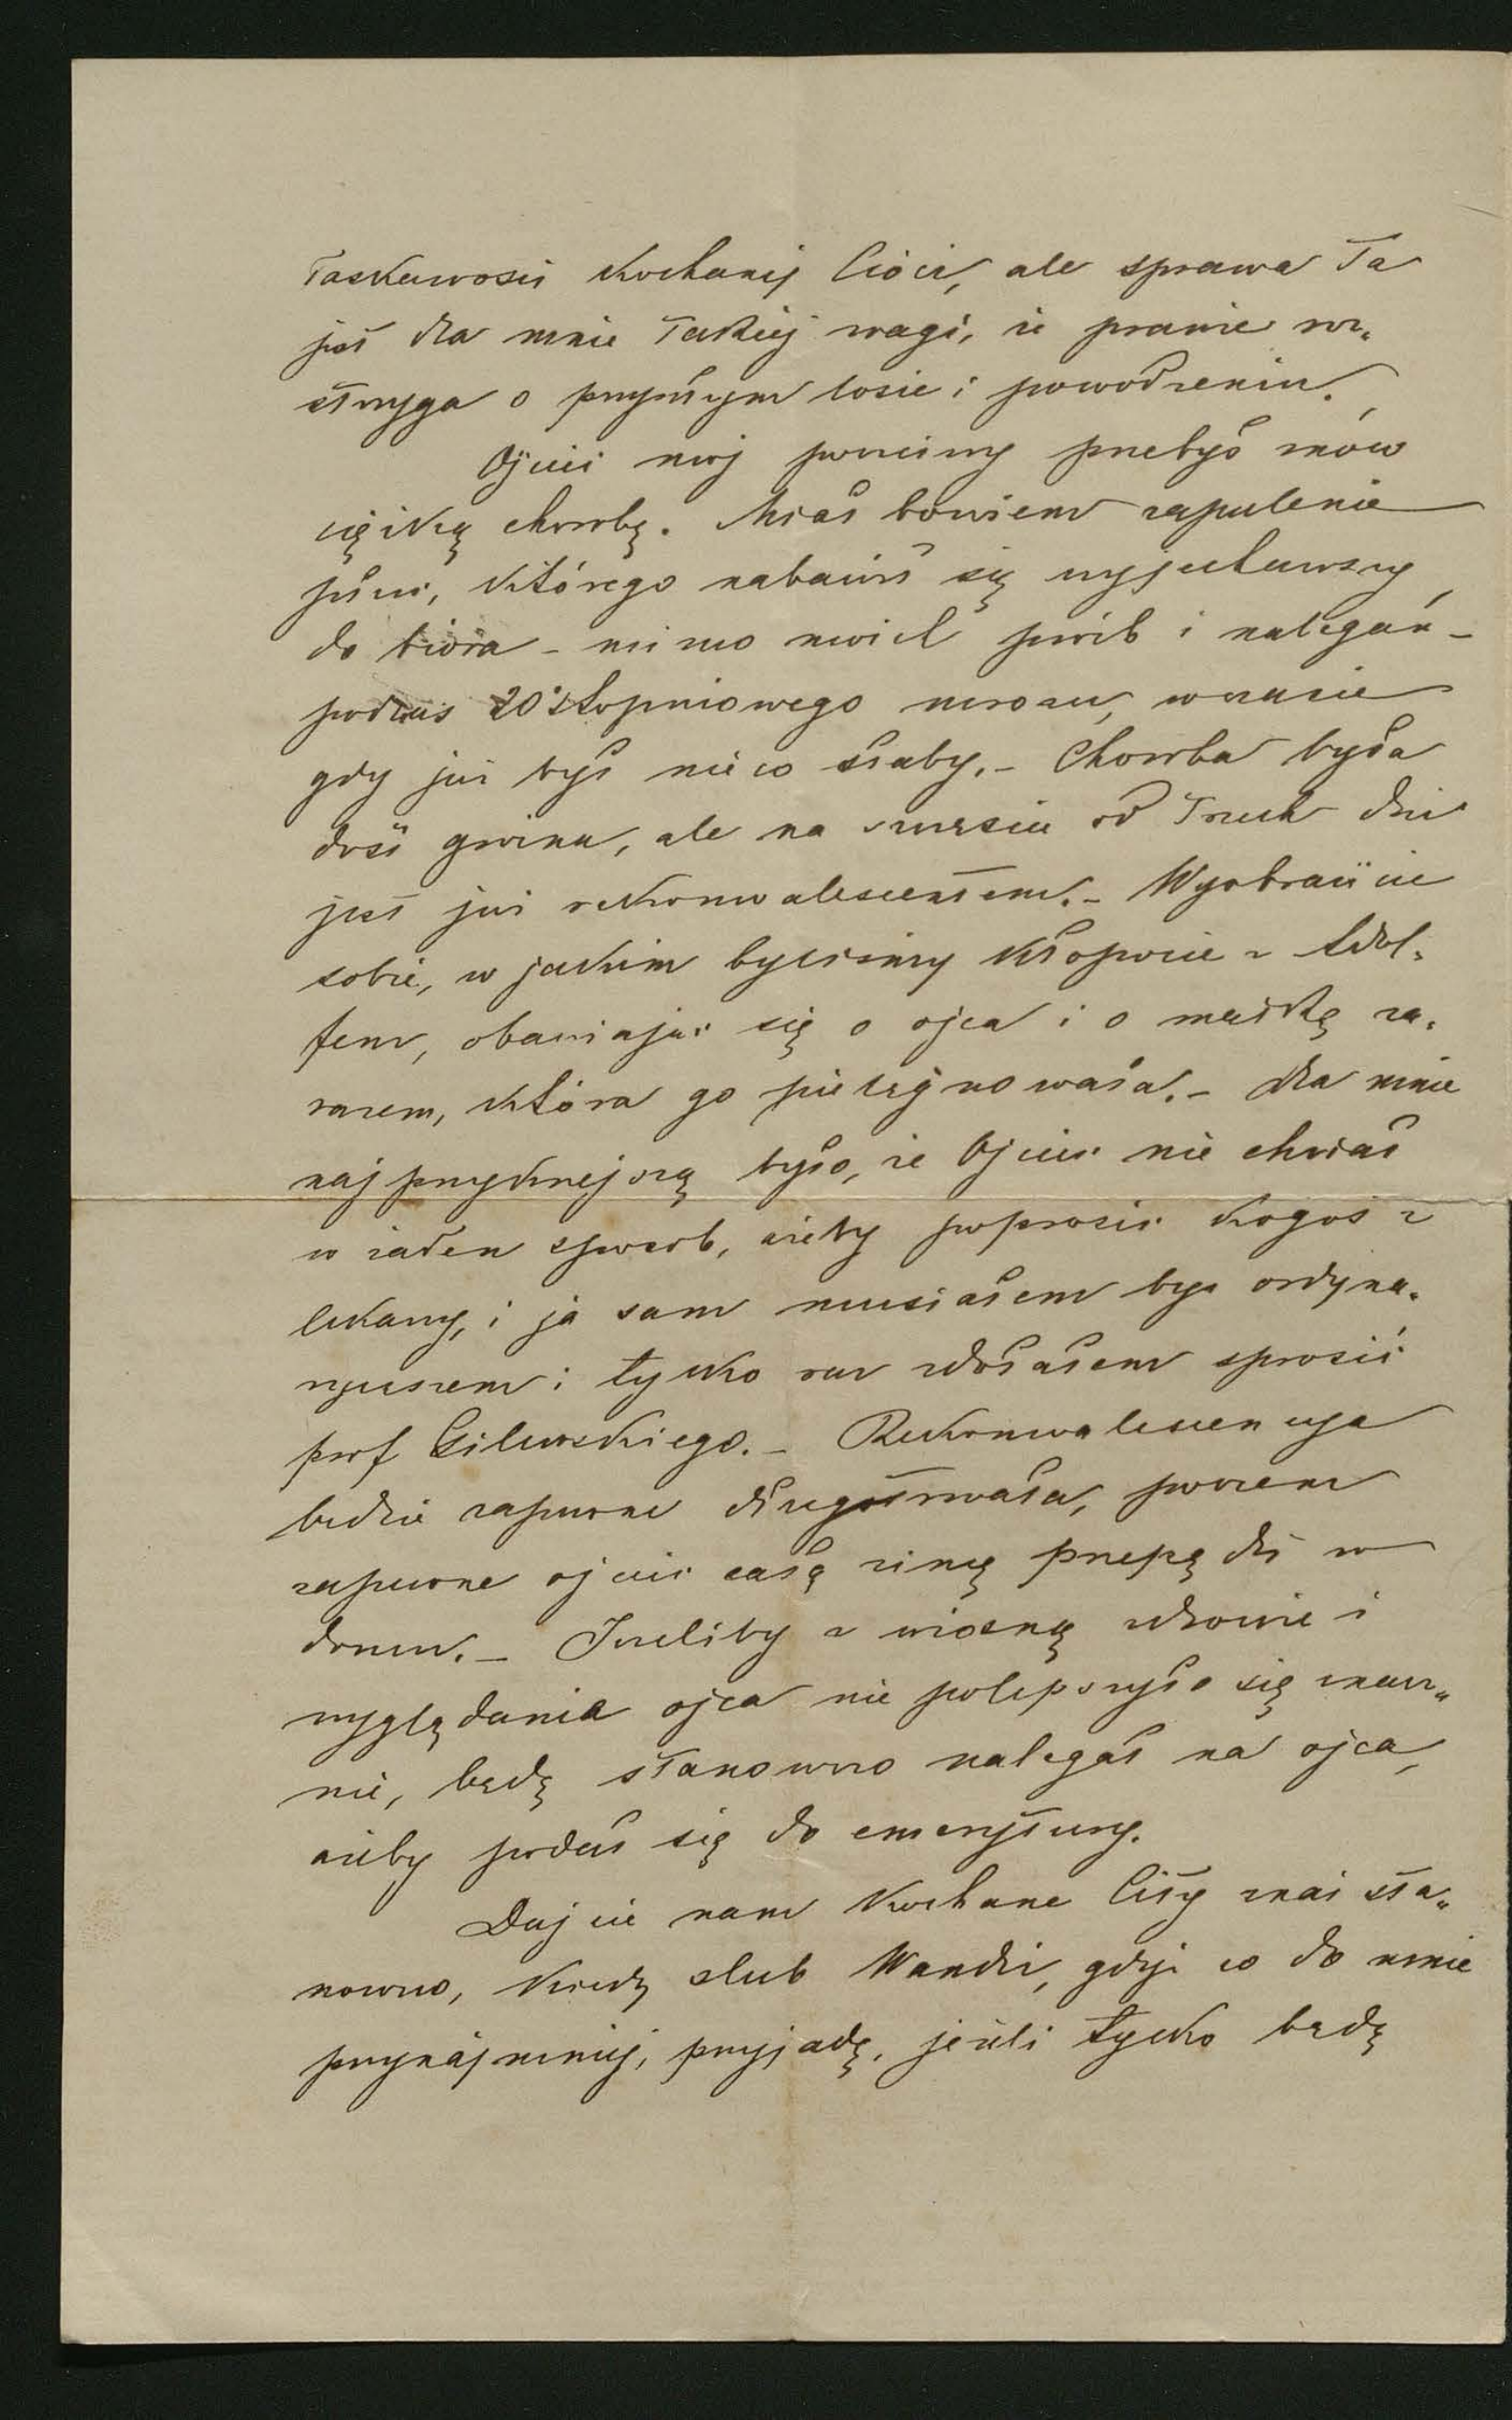 łaskawości kochanej Cioci, ale sprawa ta
jest dla mnie takiej wagi, że prawie roz„
strzyga o przyszłym losie i powodzeniu.
Ojciec mój poczciwy przebył znów
ciężką chorobę. Miał bowiem zapalenie
płuc, którego nabawił się wyjechawszy
do biura – mimo moich próśb i nalegań –
podczas 20°stopniowego mrozu, w czasie
gdy już był nieco słaby. – Choroba była
dość groźna, ale na szczęście od trzech dni
jest już rekonwalescentem. – Wyobraźcie
sobie, w jakim byliśmy kłopocie z Adol„
fem, obawiając się o ojca i o matkę za„
razem, która go pielęgnowała. – Dla mnie
najprzykrzejszą było, że Ojciec nie chciał
w żaden sposób, ażeby poprosić kogoś z
lekarzy, i ja sam musiałem być ordyna„
ryuszem i tylko raz zdołałem sprosić
prof Gilewskiego. – Rekonwalescencya
będzie zapewne długo trwała, poczem
zapewne ojciec całą zimę przepędzi w
domu. – Jeżeliby z wiosną zdrowie i
wyglądanie ojca nie polepszyło się znacz„
nie, będę stanowczo nalegał na ojca,
ażeby podał się do emerytury.
Dajcie nam kochane Cioty znać sta„
nowczo, kiedy ślub Wandzi, gdyż co do mnie
przynajmniej, przyjadę, jeżeli tylko będę